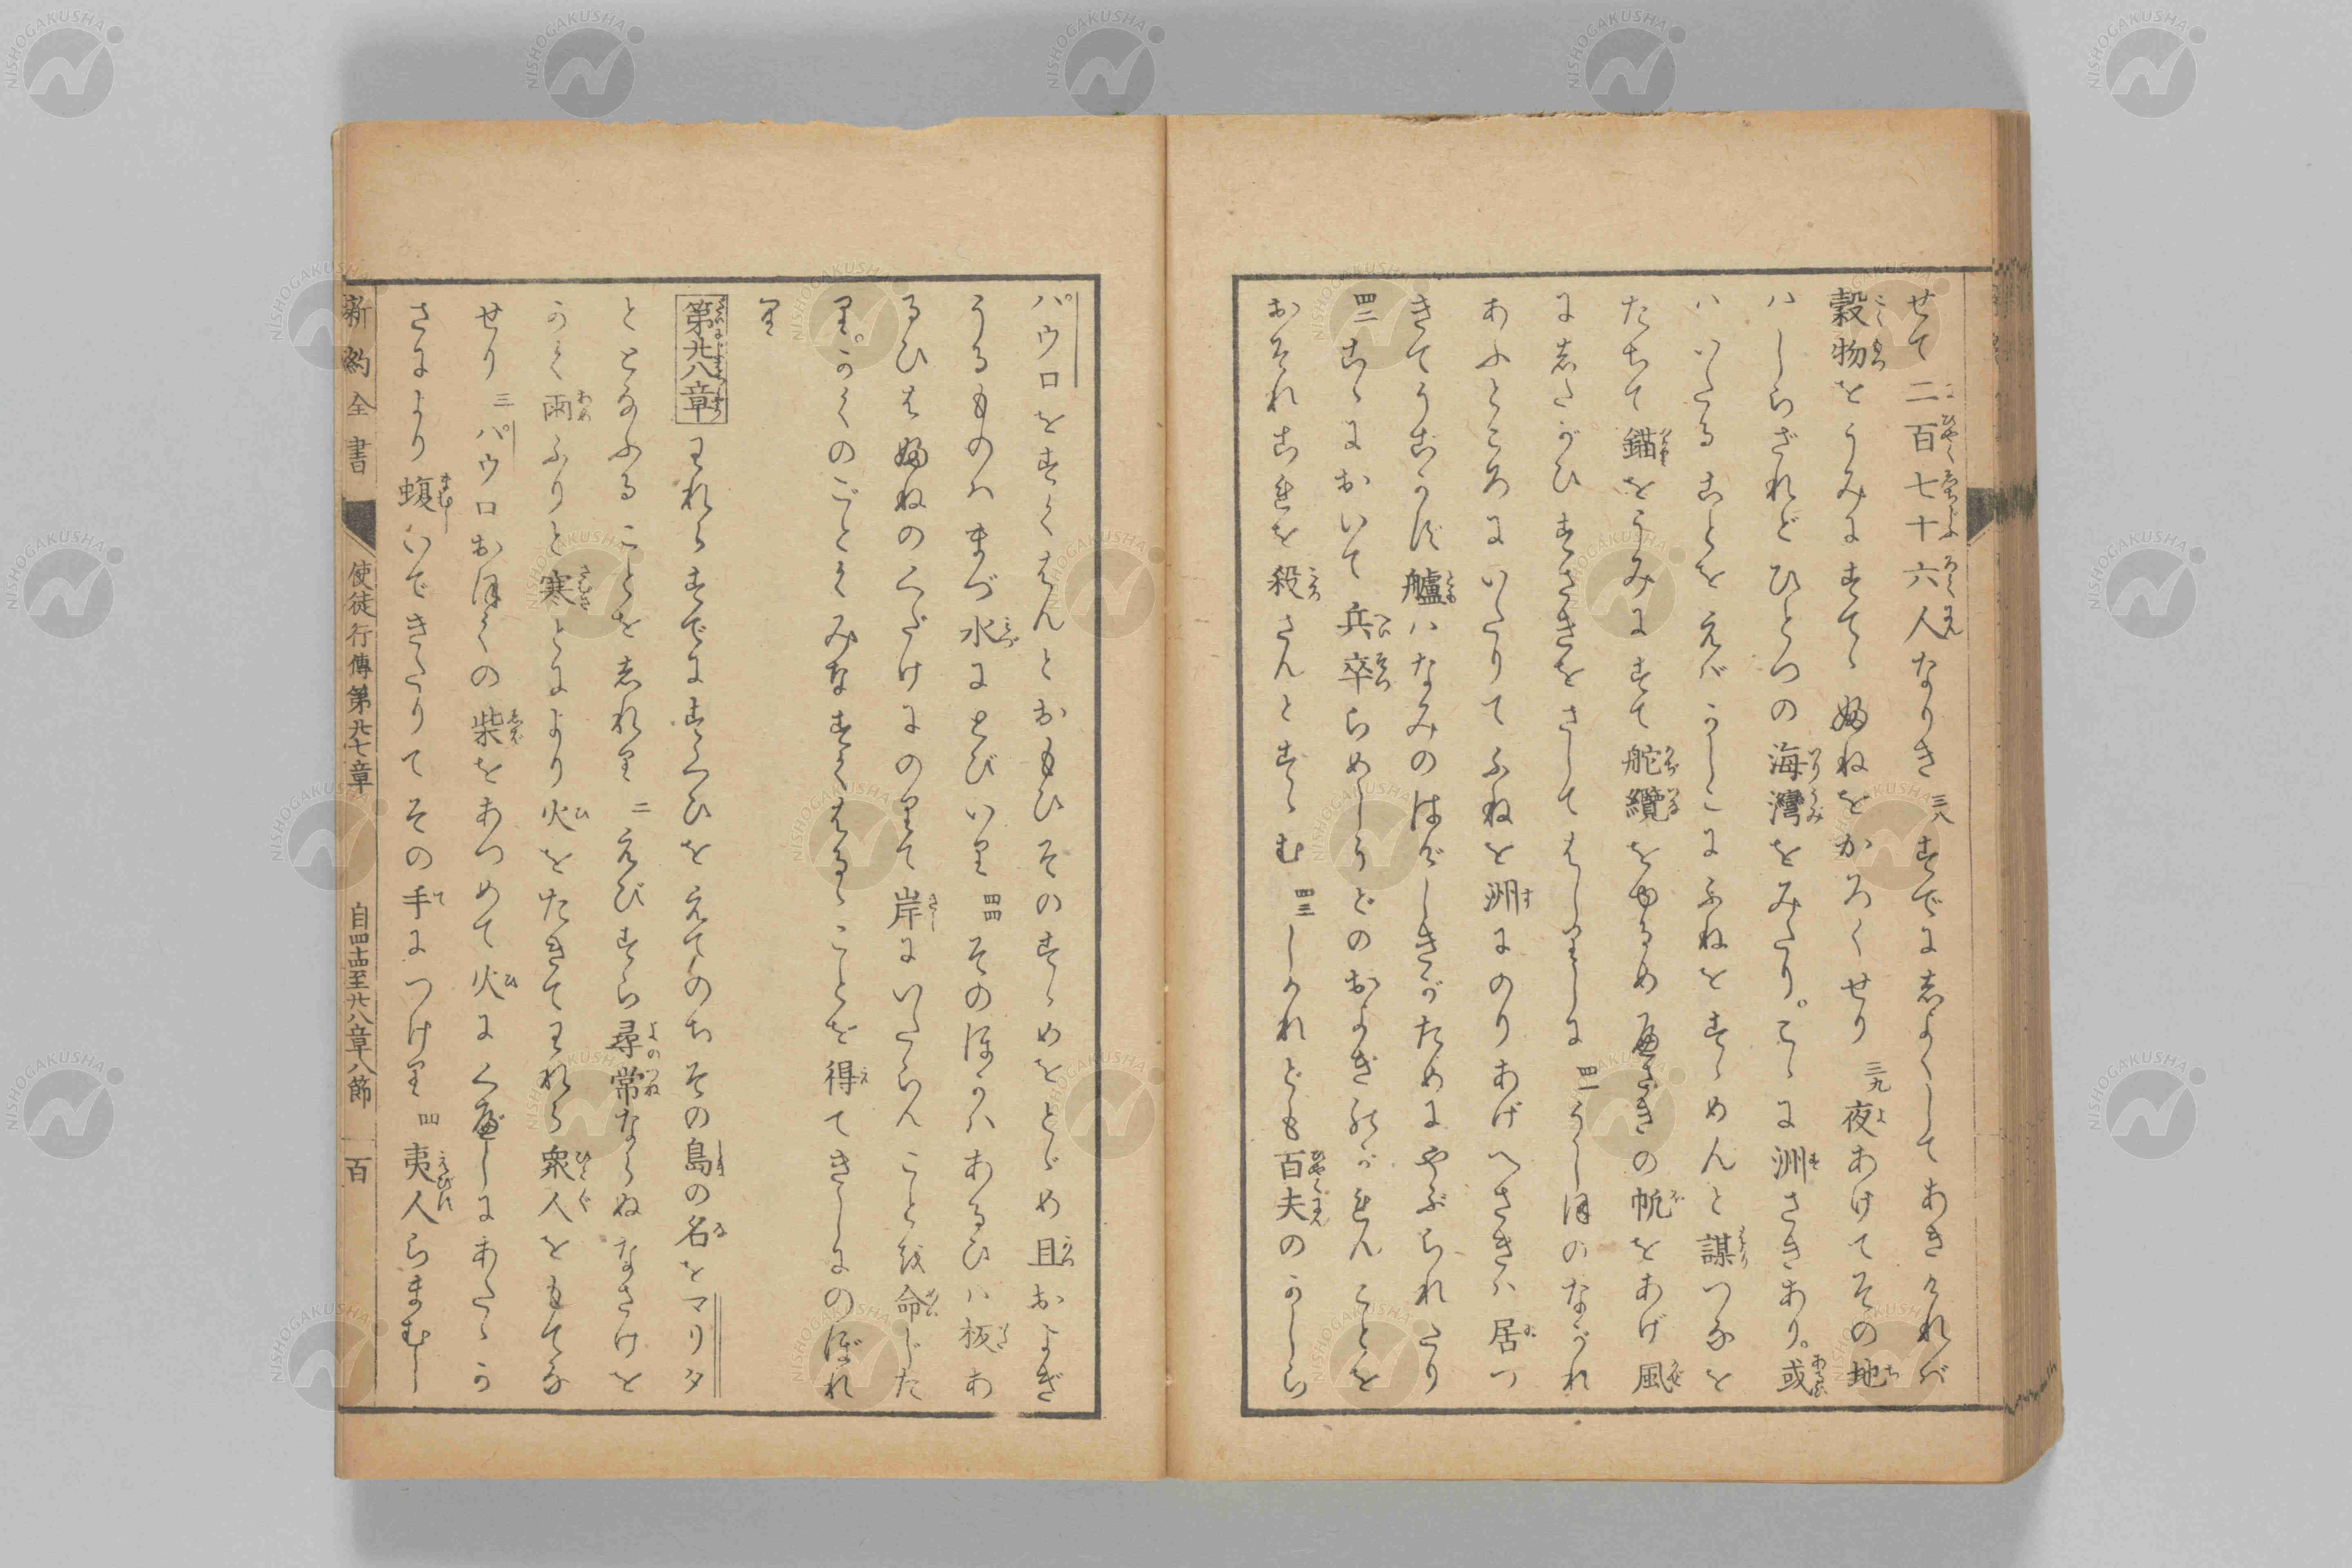 せて二百七十六人なりき 三八 すでにしよくしてあきければ
穀物をうみにすてゝ船ねをかろくせり 三九 夜あけてその地
ハしらざれどひとつの海灣をみたり。こゝに洲さきあり。或
ハいたることをえバかしこにふねをすゝめんと謀つなを
たちて錨をうみにすて舵纜をゆるめ へさきの帆をあげ風
にしたがひすさきをさしてはしりしに 四一 うしほのながれ
あふところにいたりてふねを洲にのりあげへさきハ居つ
きてうごかず艫ハなみのはげしきがためにやぶられたり
四二 こゝにおいて兵卒らめしうどのおよぎのがれんことを
おそれこれを殺さんとすゝむ 四三 しかれども百夫のかしら
パウロをすくはんとおもひそのすゝめをとゞめ且およぎ
うるものハまづ水にとびいり 四四 そのほかハあるひハ板あ
るひは船ねのくだけにのりて岸にいたらんことを命じた
り。かくのごとくみなすくはるゝことを得てきしにのぼれ
り
第廿八章 われらすでにすくひをえてのちその島の名をマリタ
ととなふることをしれり 二 えびすら尋常ならぬなさけを
かく雨ふりと寒とにより火をたきてわれら衆人をもてな
せり 三 パウロおほくの柴をあつめて火にくべしにあたゝか
さにより蝮いできたりてその手につけり 四 夷人らまむし
新約全書 使徒行傳第廿七章 自四十四至廿八章八節 百